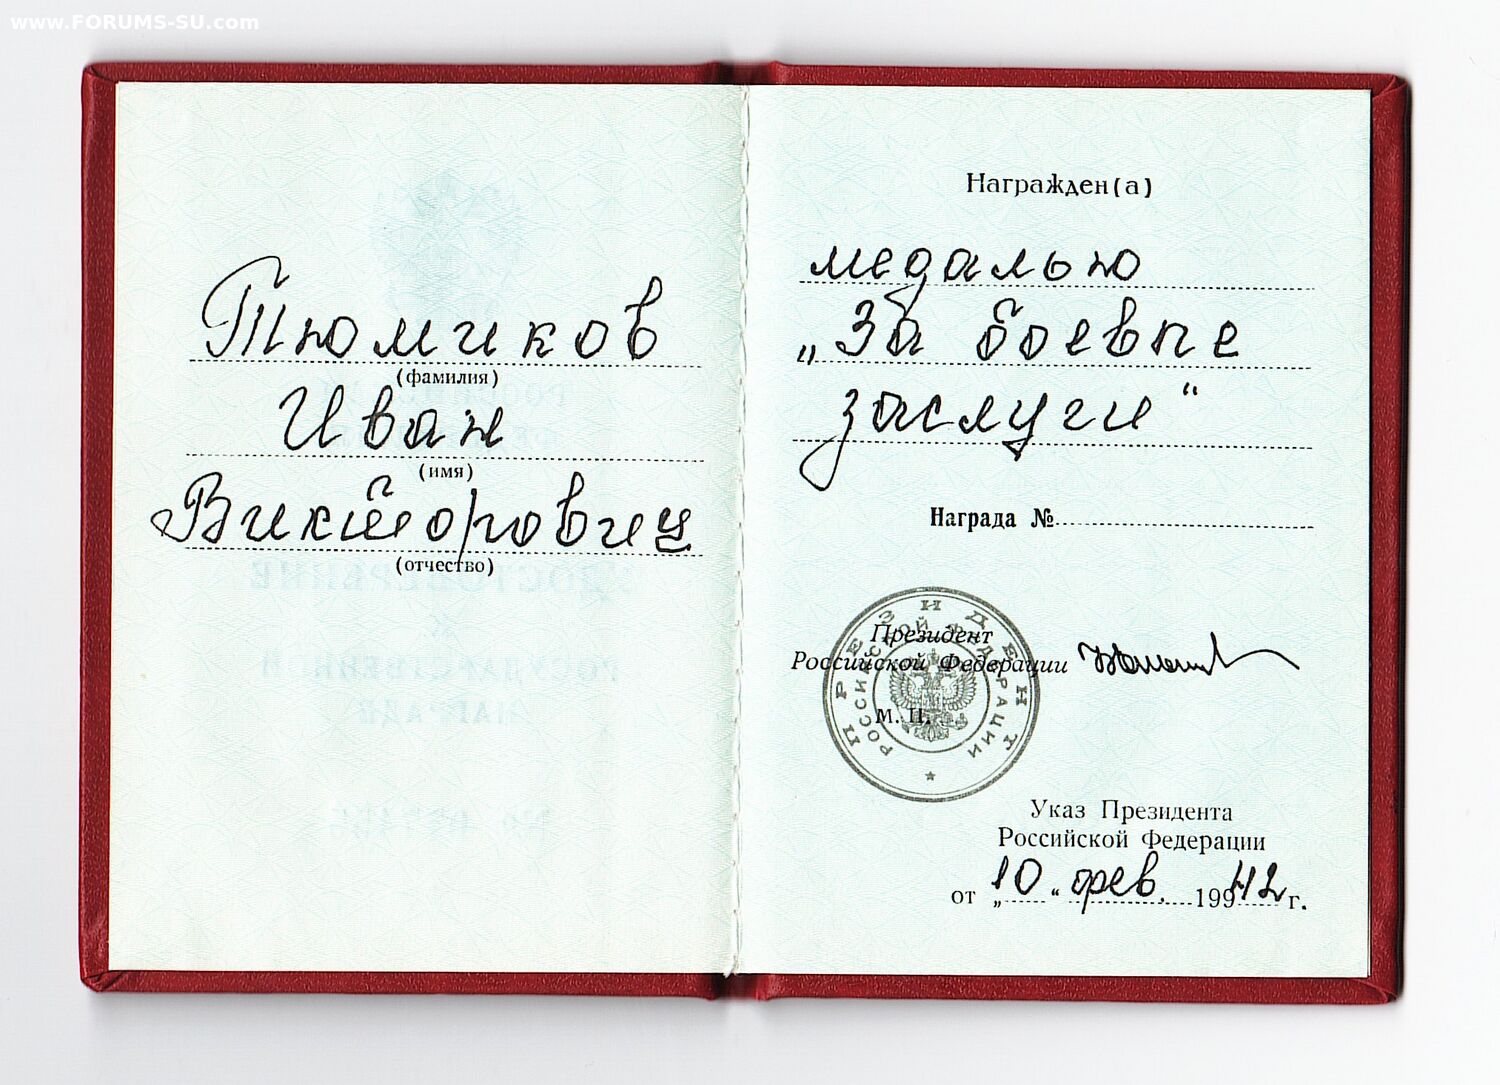 www.FORUMS-SU.com
Тюмиков
(фамилия)
Иван
(имя)
Викторович
(отчество)
Награжден(а)
медалью
„За боевые
заслуги“
Награда №
ПРЕЗИДЕНТ
РОССИЙСКОЙ ФЕДЕРАЦИИ
Президент
Российской Федерации
М. П.
Указ Президента
Российской Федерации
от „10“ фев. 19942 г.